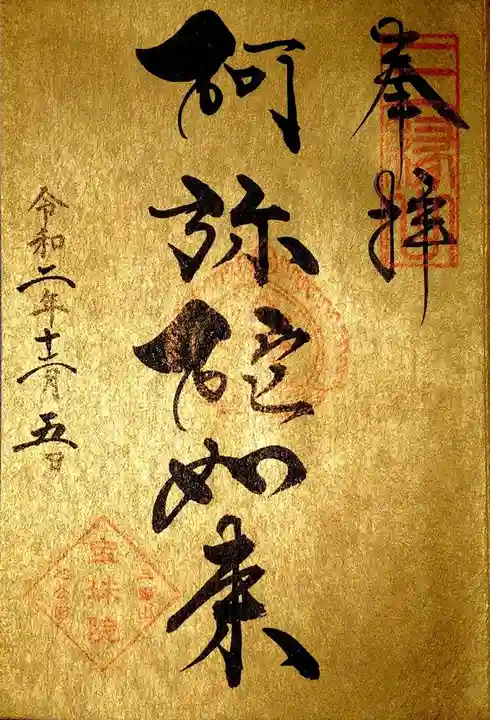 奉拝
阿弥陀如来
令和二年十二月五日
宝珠院